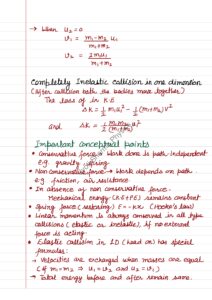 → When u₂ = 0
v₁ = m₁ - m₂ / m₁ + m₂ u₁
v₂ = 2m₁u₁ / m₁ + m₂
Completely Inelastic collision in one dimension
(After collision both the bodies move together)
The loss of in K.E
ΔK = 1/2 m₁u₁² - 1/2 (m₁+m₂)V²
and ΔK = 1/2 m₁m₂ / (m₁+m₂) u₁²
Important conceptual points
• Conservative force → Work done is path independent
e.g. gravity, spring
• Non conservative force → Work depends on path
e.g. friction, air resistance
• In absence of non conservative force.
Mechanical energy (KE+PE) remains constant
• Spring force (restoring) F = -kx (Hooke's law)
• Linear momentum is always conserved in all type
collisions (elastic or inelastic), if no external
force is acting.
• Elastic collision in 1D (head on) has special
formulas:
→ Velocities are exchanged when masses are equal
(if m₁ = m₂ ⇒ u₁ = v₂ and u₂ = v₁)
→ Total energy before and after remain same.